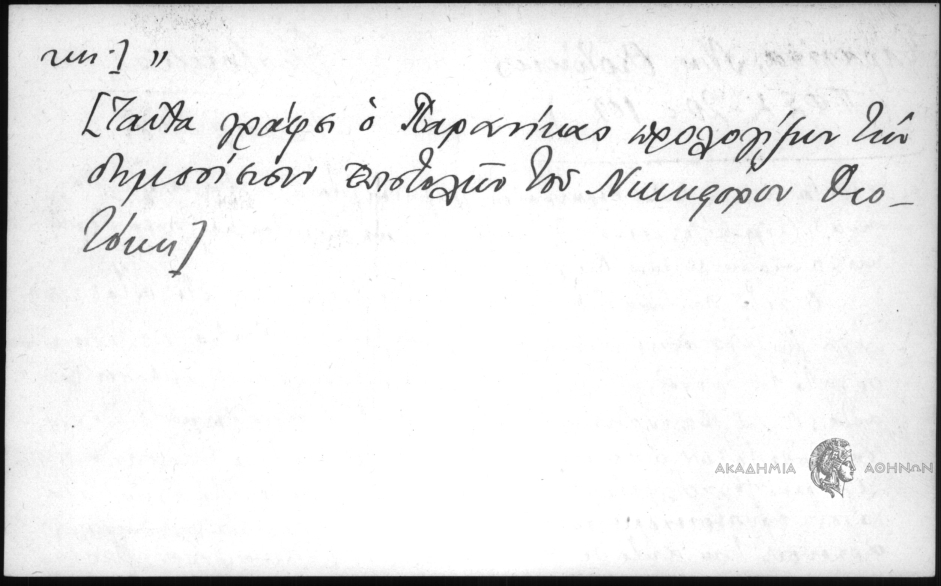 [Ταῦτα γράφει ὁ Παρανίκας προλογίζων τὴν
δημοσίευσιν ἐπιστολῶν τοῦ Νικηφόρου Θεο-
τόκη]
ΑΚΑΔΗΜΙΑ ΑΘΗΝΩΝ